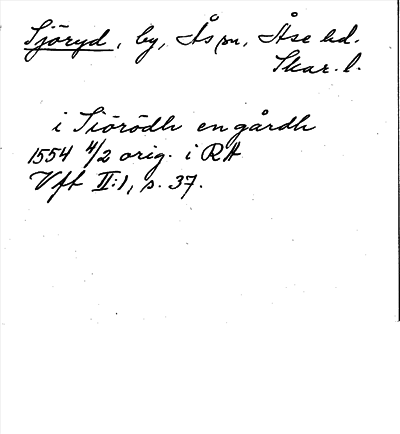 Sjöryd, by, Ås sn, Åse hd.
Skar. l.
i Siörödh en gårdh
1554 4/2 orig. i RA
Vft II:1, s. 37.